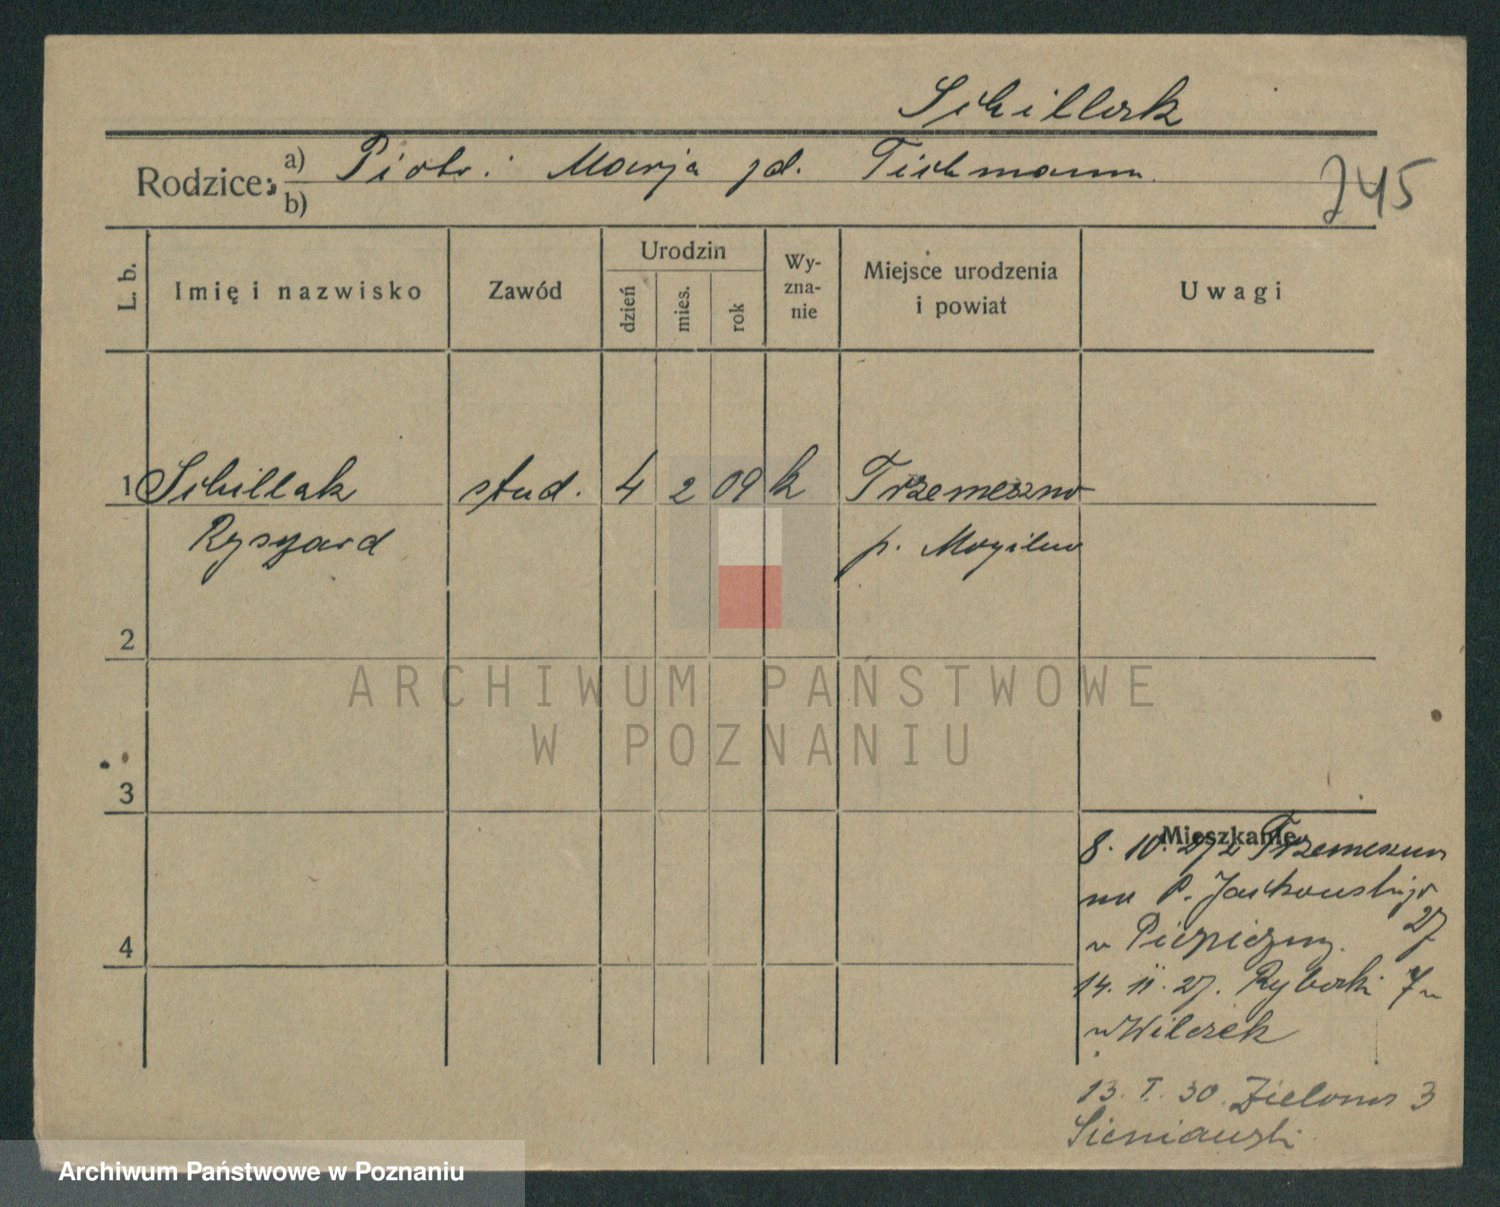 Schillak
Rodzice: a) Piotr. Marja zd. Tichmann.
b)
J45
L. b.
Imię i nazwisko
Zawód
Urodzin
dzień
mies.
rok
Wy-
zna-
nie
Miejsce urodzenia
i powiat
Uwagi
1 Schillak stud. 4 2 09 k Trzemeszno
Ryszard p. Mogilno
2
ARCHIWUM PAŃSTWOWE
W POZNANIU
3
Mieszkanie
8. 10. 27 z Trzemeszna
na P. Jackowskiego
27
u
14. 11. 27. Rybaki 7
u Wilczek
4
13. I. 30. Zielona 3
Sieniawski
Archiwum Państwowe w Poznaniu